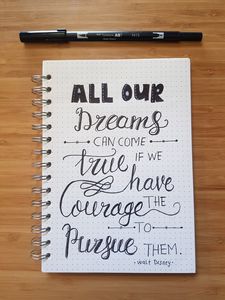 ALL OUR
Dreams
CAN COME
true IF WE
have
Courage THE
TO
Pursue THEM.
· Walt Disney ·